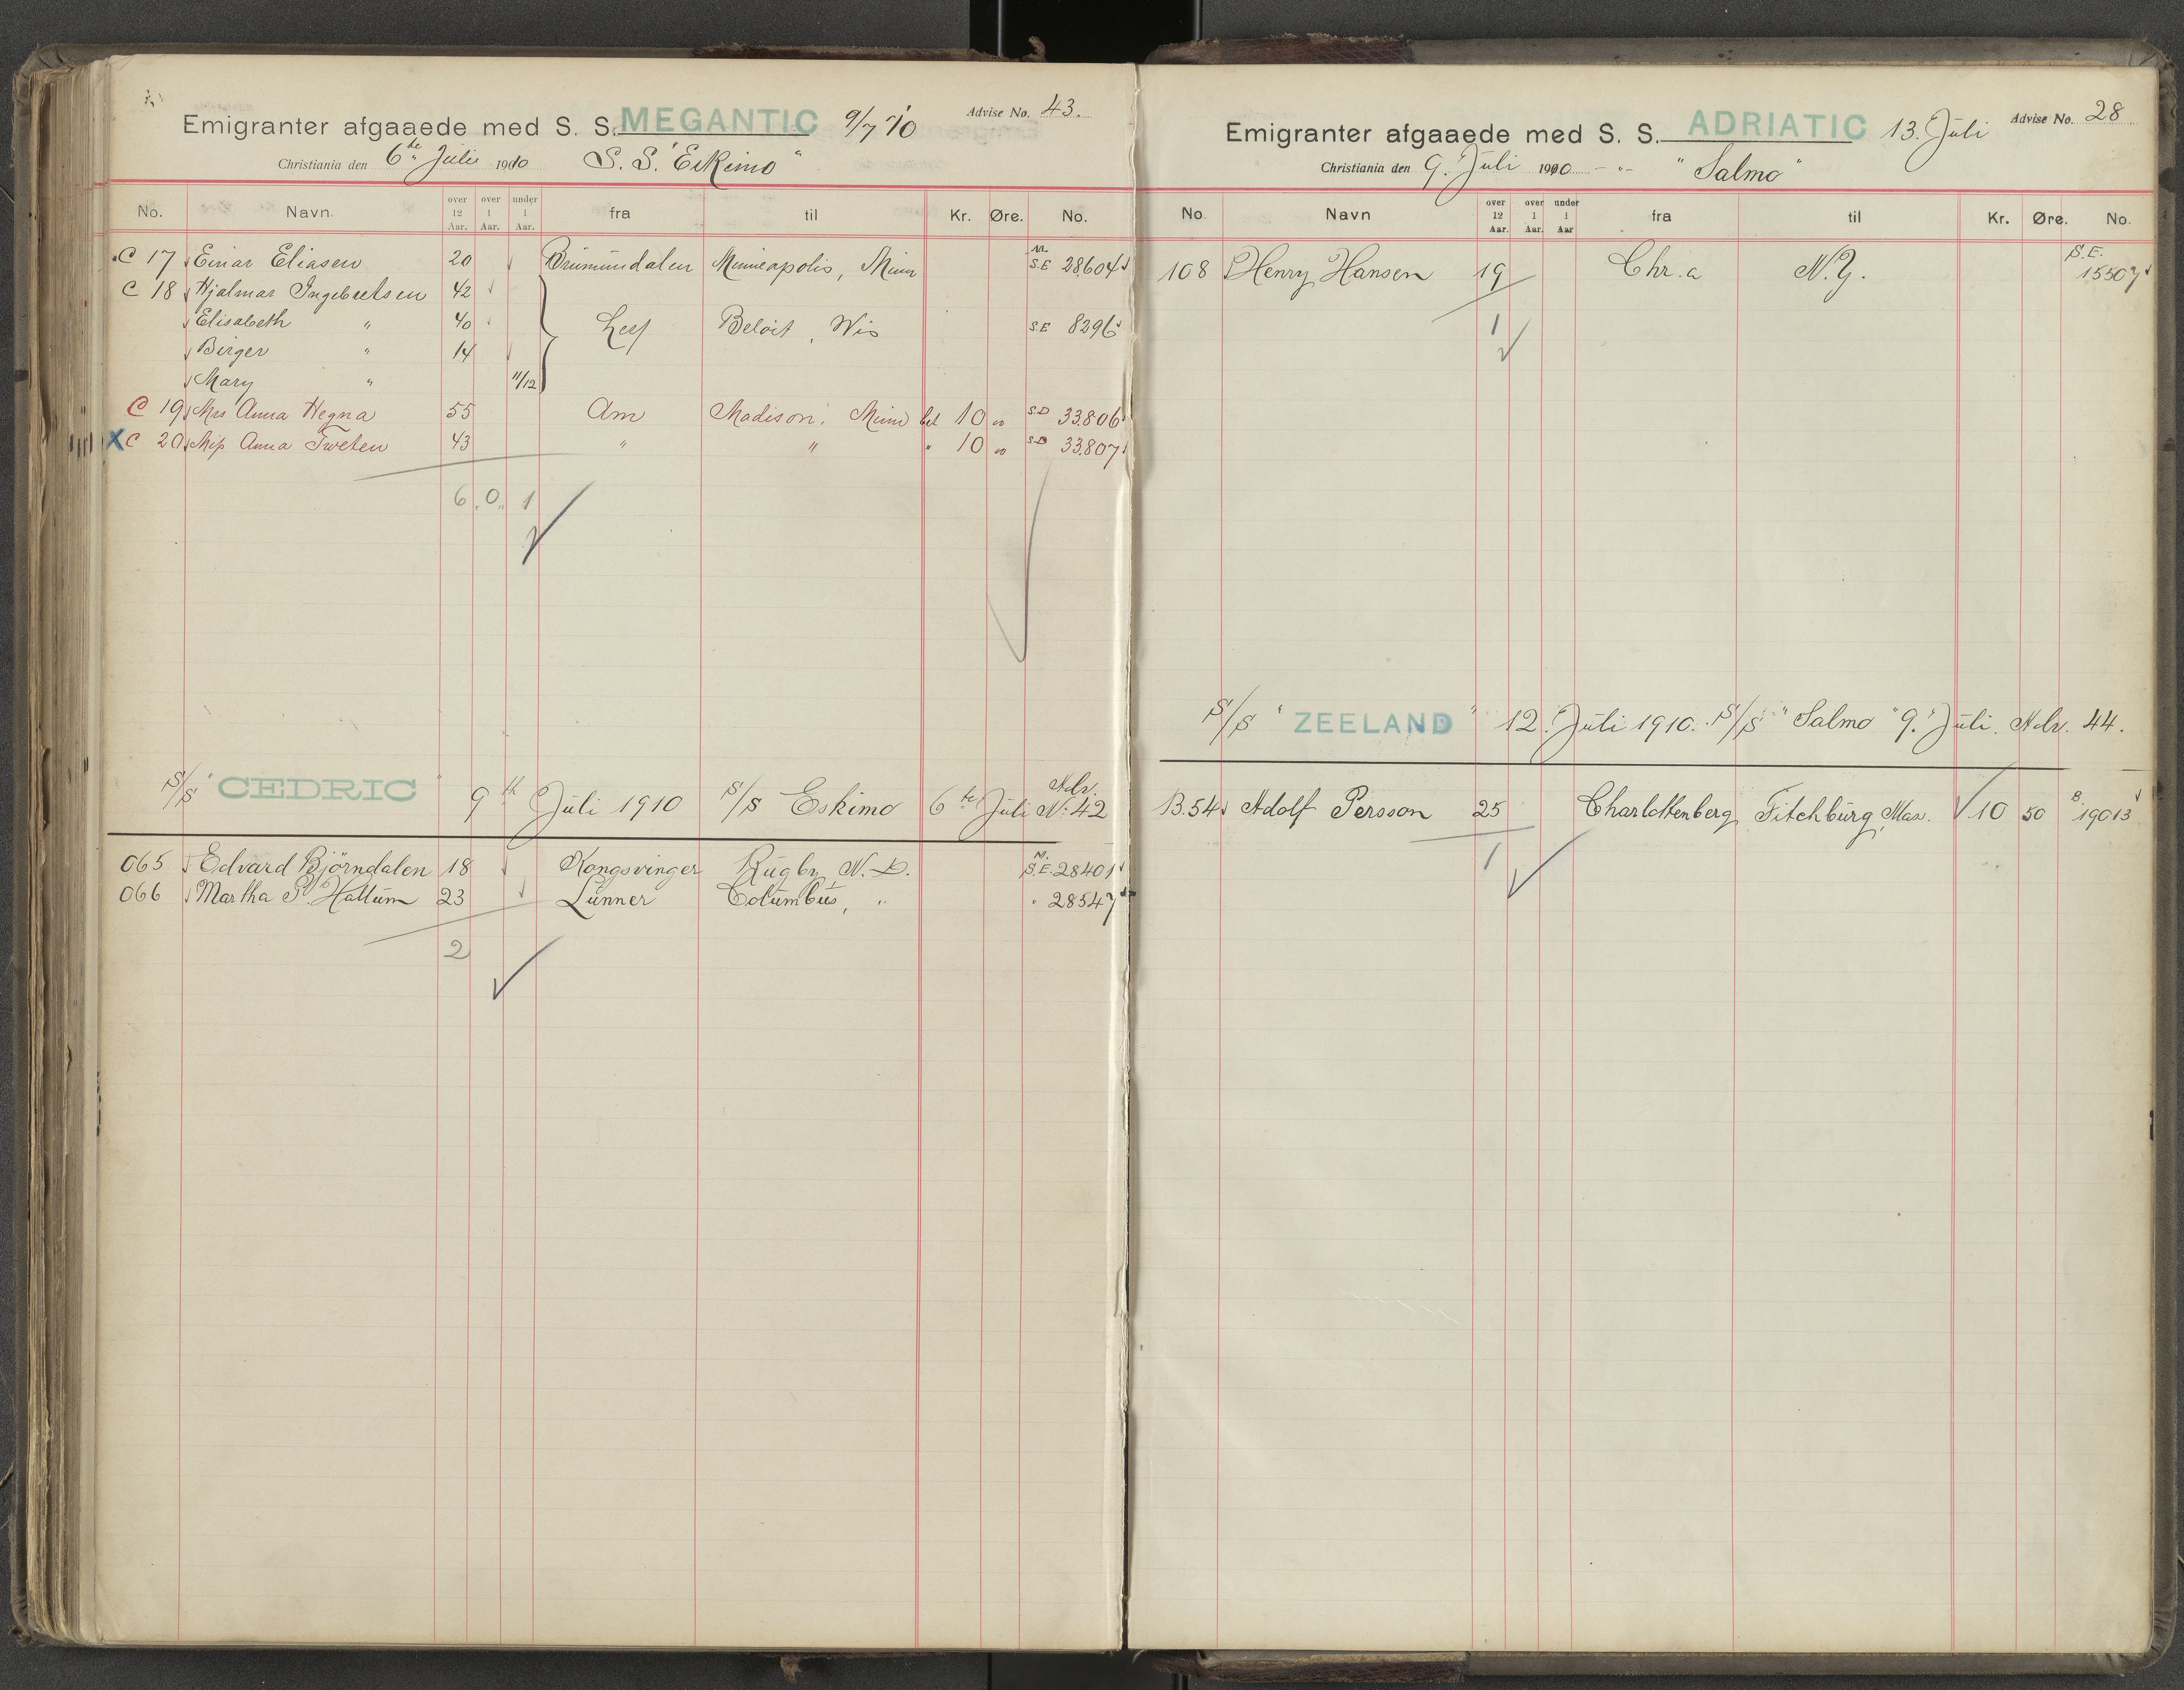 Emigranter afgaaede med S. S. MEGANTIC 9/7 '10 Advise No. 43.
Christiania den 6te Juli 1910 S. S. "Eskimo"
No. Navn. over 12 Aar. over 1 Aar. under 1 Aar. fra til Kr. Øre. No.
C 17 Einar Eliasen 20 Brumunddalen Minneapolis, Minn S.E 28604
C 18 Hjalmar Ingebretsen 42
Elisabeth " 40 Beloit, Wis S.E 8296
Birger " 14
Mary " 11/12
C 19 Mrs Anna Hegna 55 Am Madison, Minn bet 10 00 S.D 33.806
X C 20 Miss Anna Tweten 43 " " " 10 00 S.D 33.807
6 " 0 " 1
S/S "CEDRIC" 9th Juli 1910 S/S Eskimo 6te Juli Adv. No. 42
065 Edvard Björndalen 18 Kongsvinger Rugby, N. D. M. S.E. 28401
066 Martha P. Hallum 23 Lunner Columbus, " " 28547
2
Emigranter afgaaede med S. S. ADRIATIC 13. Juli Advise No. 28
Christiania den 9. Juli 1910 - " - "Salmo"
No. Navn over 12 Aar. over 1 Aar. under 1 Aar fra til Kr. Øre. No.
108 Henry Hansen 19 Chr.a N.Y. S.E. 15507
1
S/S "ZEELAND" 12. Juli 1910. S/S "Salmo" 9. Juli. Adv. 44.
B.54 Adolf Persson 25 Charlottenberg Fitchburg, Mas. 10 50 B. 19013
1